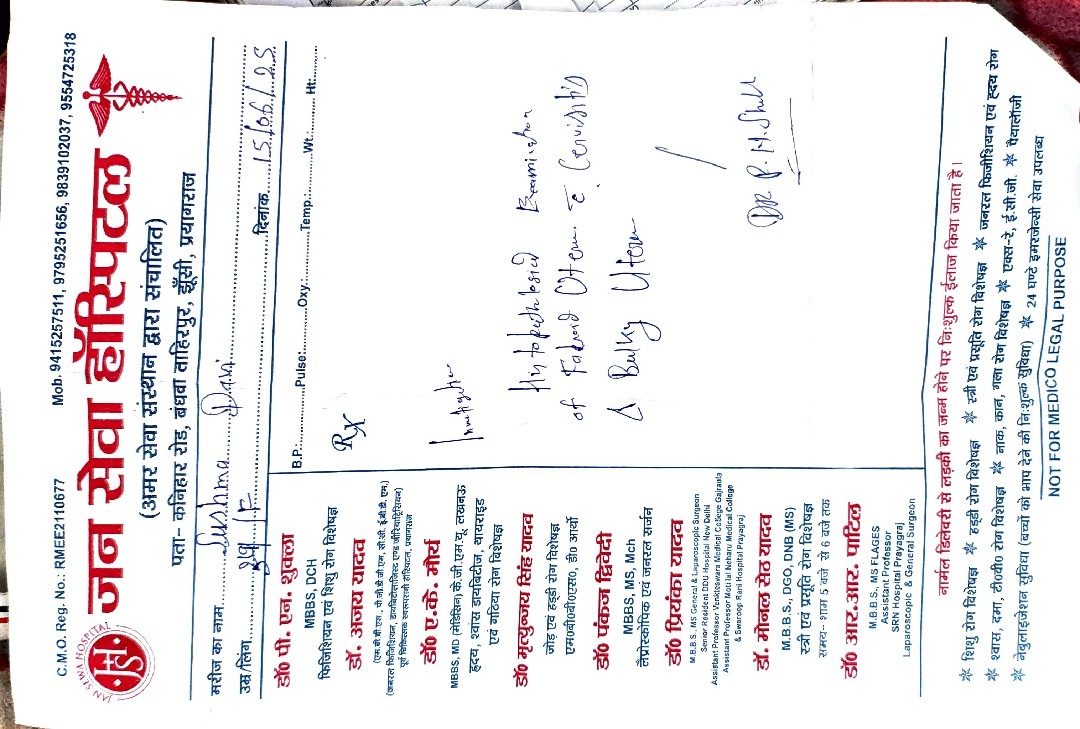 C.M.O. Reg. No.: RMEE2110677 Mob. 9415257511, 9795251656, 9839102037, 9554725318
JAN SEWA HOSPITAL
जन सेवा हॉस्पिटल
(अमर सेवा संस्थान द्वारा संचालित)
पता- कनिहार रोड, बंधवा ताहिरपुर, झूँसी, प्रयागराज
मरीज का नाम, Sushma Dani
उम्र/लिंग 29/F दिनांक 15/06/25
B.P.: Pulse: Oxy.: Temp.: Wt.: Ht:
डॉ0 पी. एन. शुक्ला
MBBS, DCH
फिजिशियन एवं शिशु रोग विशेषज्ञ
डॉ. अजय यादव
(जनरल फिजिशियन, डायबिटोलाजिस्ट एण्ड जीरियाट्रिशियन)
पूर्व चिकित्सक स्वरूपरानी हॉस्पिटल, प्रयागराज
डॉ0 ए.के. मौर्य
MBBS, MD (मेडिसिन) के.जी.एम.यू. लखनऊ
हृदय, श्वांस डायबिटीज, थायराइड
एवं गठिया रोग विशेषज्ञ
डॉ0 मृत्युन्जय सिंह यादव
जोड़ एवं हड्डी रोग विशेषज्ञ
एम0बी0बी0एस0, डी0 आर्थो
डॉ0 पंकज द्विवेदी
MBBS, MS, Mch
लैप्रोस्कोपिक एवं जनरल सर्जन
डॉ0 प्रियंका यादव
M.B.B.S., MS General & Laparoscopic Surgeon
Senior Resident DDU Hospital New Delhi
Assistant Professor Venkteshwara Medical College Gajraula
Assistant Professor Moti lal Neharu Medical College
& Swaroop Rani Hospital Prayagraj
डॉ. मोनल सेठ यादव
M.B.B.S., DGO, DNB (MS)
स्त्री एवं प्रसूति रोग विशेषज्ञ
समय- शाम 5 बजे से 6 बजे तक
डॉ0 आर.आर. पाटिल
M.B.B.S., MS FLAGES
Assistant Professor
SRN Hospital Prayagraj
Laparoscopic & General Surgeon
Rx
Investigation
Histopathological Examination
of Fibroid Uterus c̄ Cervicitis
Δ Bulky Uterus
DR P. N. Shukl
नार्मल डिलेवरी से लड़की का जन्म होने पर निःशुल्क ईलाज किया जाता है।
✲ शिशु रोग विशेषज्ञ ✲ हड्डी रोग विशेषज्ञ ✲ स्त्री एवं प्रसूति रोग विशेषज्ञ ✲ जनरल फिजीशियन एवं हृदय रोग
✲ श्वास, दमा, टी0वी0 रोग विशेषज्ञ ✲ नाक, कान, गला रोग विशेषज्ञ ✲ एक्स-रे, ई.सी.जी. ✲ पैथालॉजी
✲ नेबुलाइजेशन सुविधा (बच्चों को भाप देने की निःशुल्क सुविधा) ✲ 24 घण्टे इमरजेन्सी सेवा उपलब्ध
NOT FOR MEDICO LEGAL PURPOSE